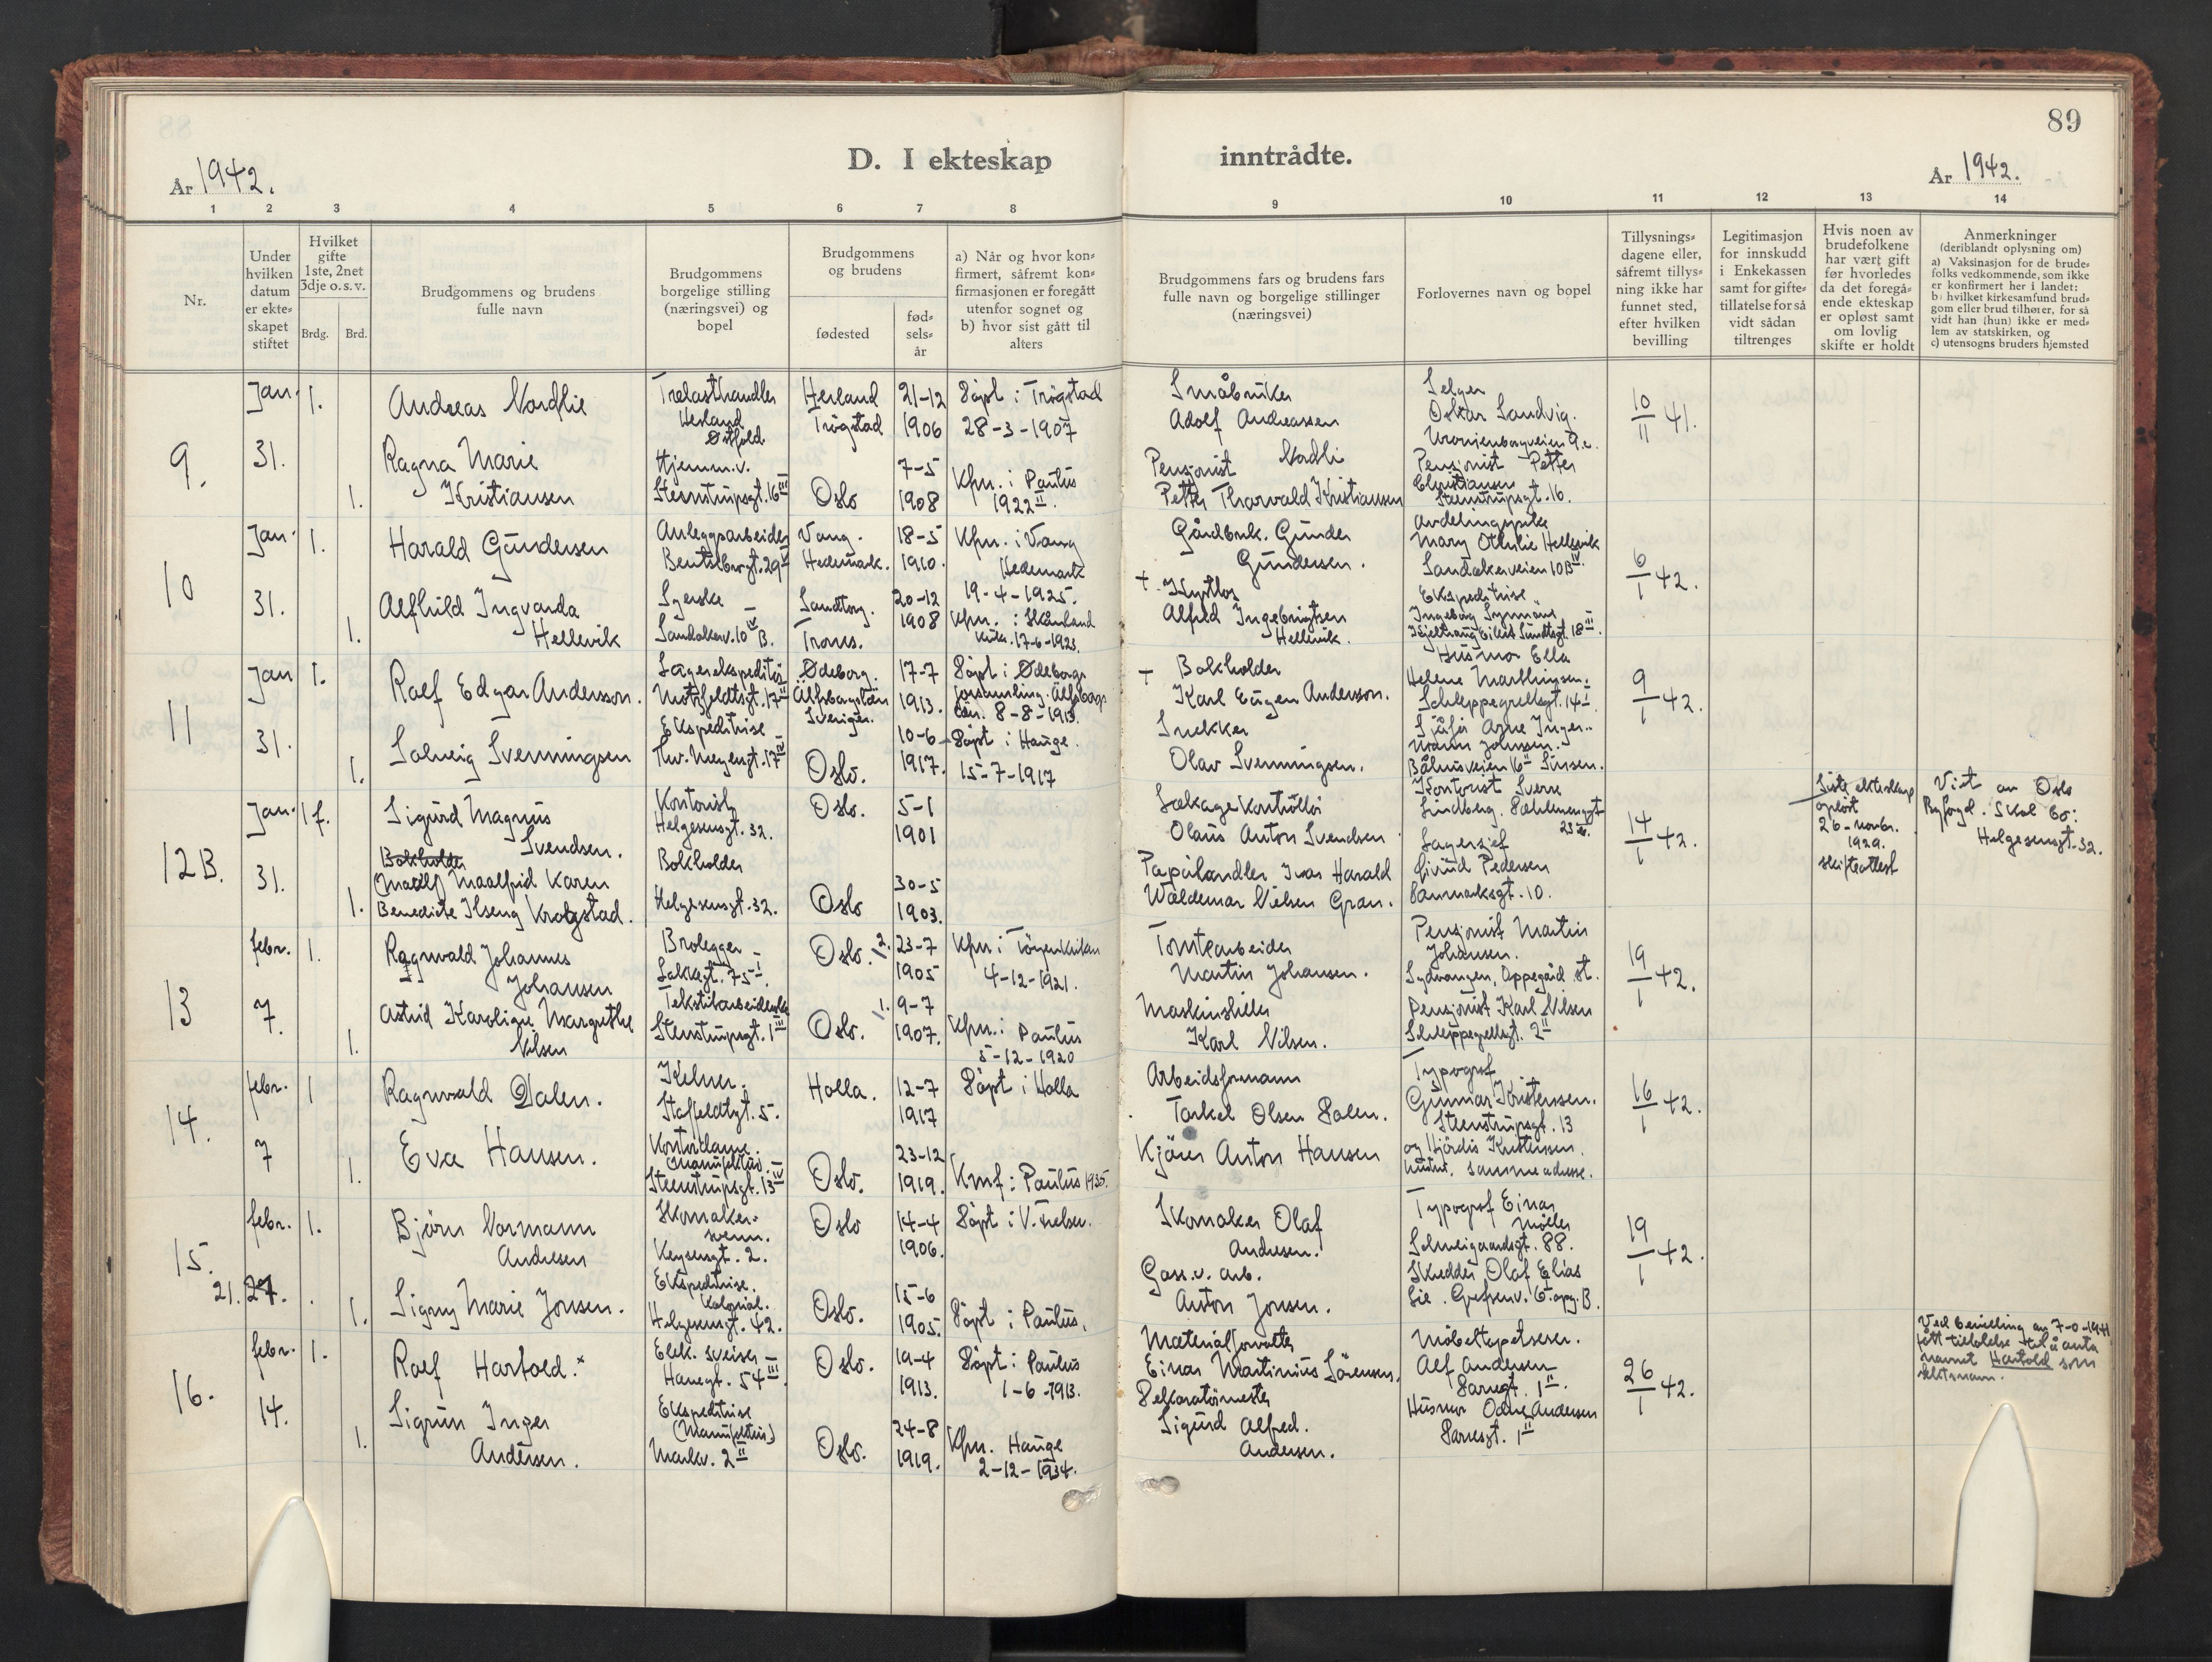 89
D. I ekteskap inntrådte.
År 1942.
År 1942.
1 2 3 4 5 6 7 8 9 10 11 12 13 14
Nr.
Under
hvilken
datum
er ekte-
skapet
stiftet
Hvilket
gifte
1ste, 2net
3dje o.s.v.
Brdg. Brd.
Brudgommens og brudens
fulle navn
Brudgommens
borgelige stilling
(næringsvei) og
bopel
Brudgommens
og brudens
fødested
fød-
sels-
år
a) Når og hvor kon-
firmert, såfremt kon-
firmasjonen er foregått
utenfor sognet og
b) hvor sist gått til
alters
Brudgommens fars og brudens fars
fulle navn og borgelige stillinger
(næringsvei)
Forlovernes navn og bopel
Tillysnings-
dagene eller,
såfremt tillys-
ning ikke har
funnet sted,
efter hvilken
bevilling
Legitimasjon
for innskudd
i Enkekassen
samt for gifte-
tillatelse for så
vidt sådan
tiltrenges
Hvis noen av
brudefolkene
har vært gift
før hvorledes
da det foregå-
ende ekteskap
er opløst samt
om lovlig
skifte er holdt
Anmerkninger
(deriblandt oplysning om)
a) Vaksinasjon for de brude-
folks vedkommende, som ikke
er konfirmert her i landet:
b) hvilket kirkesamfund brud-
gom eller brud tilhører, for så
vidt han (hun) ikke er med-
lem av statskirken, og
c) utensogns bruders hjemsted
9.
Jan. 31.
1.
Andreas Nordlie
Trelasthandler
Herland
Østfold
Herland
Trøgstad
21-12
1906
Døpt i Trøgstad
28-3-1907
Småbruker
Adolf Andreassen
Nordli
Selger
Oskar Sandvig.
Uranienborgveien 9.c.
10/11 41.
1.
Ragna Marie
Kristiansen
Hjemm.v.
Steenstrupsgt. 16 III
Oslo
7-5
1908
Kfm. i Paulus
1922 II.
Pensjonist
Petter Thorvald Kristiansen
Pensjonist Petter
Christiansen
Steenstrupsgt. 16.
10
Jan. 31.
1.
Harald Gundersen
Anleggsarbeider
Bentsebrugt. 29 IV
Vang.
Hedemark.
18-5
1910.
Kfm. i Vang
Hedemark
19-4-1925.
Gårdbruk. Gunder
Gundersen.
Mary Othelie Hellevik
Sandakerveien 10B IV.
6/1 42.
1.
Alfhild Ingvarda
Hellevik
Syerske
Sandakerv. 10 IV B.
Sandtorg.
Troms.
20-12
1908
Kfm. i Skånland
kirke. 17-6-1923.
+
Alfred Ingebrigtsen
Hellevik.
Ekspeditrise
Ingeborg
Eilert Sundtsgt. 18 III.
11
Jan 31.
1.
Rolf Edgar Andersson.
Lagerekspeditør
Motzfeldtsgt. 17 II
Ødeborg.
Älfsborgslän
Sverige.
17-7
1913.
Døpt i Ødeborgs
forsamling. Älfsborgs
län. 8-8-1913.
+
Bokholder
Karl Eugen Andersson.
Husmor Ella
Helene Marthinsen.
Schleppegrellsgt. 14 I.
9/1 42.
1.
Solveig Svenningsen
Ekspeditrise
Thv. Meyersgt. 17 IV
Oslo.
10-6
1917.
Døpt i Hauge.
15-7-1917
Snekker
Olav Svenningsen.
Sjåfør Arne Inger-
mann Johnsen.
Bålerudveien 16 II Sinsen.
12B.
Jan. 31.
1 f.
Sigurd Magnus
Svendsen.
Kontorist
Helgesensgt. 32.
Oslo.
5-1
1901
Olaus Anton Svendsen
Kontorist Sverre
Lindberg.
14/1 42.
Siste ekteskap
opløst
26-novbr.
1929.
skifteattest
Viet av Oslo
Byfogd. Skal bo:
Helgesensgt. 32.
1.
Maalfrid Karen
Benedicte Ilseng Krogstad.
Bokholder
Helgesensgt. 32.
Oslo
30-5
1903.
Papirhandler Ivar Harald
Waldemar Nielsen Gran.
Lagersjef
Eivind Pedersen
Danmarksgt. 10.
13
febr. 7.
1.
Ragnvald Johannes
Johansen
Brolegger
Lakkegt. 75 I
Oslo.
23-7
1905
Kfm. i Tøyenkirken
4-12-1921.
Tomtearbeider
Martin Johansen.
Pensjonist Martin
Johansen.
Sydvangen, Oppegård st.
19/1 42.
1.
Astrid Karoline Margrethe
Nilsen
Tekstilarbeiderske
Steenstrupsgt. 1 III
Oslo.
9-7
1907.
Kfm. i Paulus
5-12-1920
Maskinstiller
Karl Nilsen.
Pensjonist Karl Nilsen
Schleppegrellsgt. 2 II
14.
febr. 7
1
Ragnvald Dalen.
Kelner.
Staffeldtsgt. 5.
Holla.
12-7
1917
Døpt i Holla
Arbeidsformann
Torkel Olsen Dalen.
Typograf
Gunnar Kristensen.
Steenstrupsgt. 13
16/1 42.
1.
Eva Hansen.
Kontordame.
Manufaktur.
Steenstrupsgt. 13 IV
Oslo.
23-12
1919.
Kmf: Paulus 1935.
Kjören Anton Hansen
og Hjördis Kristensen.
hustru. samme adresse.
15.
febr. 21.
1.
Björn Normann
Andresen
Skomaker-
svenn.
Keysersgt. 2.
Oslo
14-4
1906.
Døpt i V. Frelser.
Skomaker Olaf
Andresen.
Typograf Einar
Møller
Schweigaardsgt. 88.
19/1 42.
1.
Signy Marie Jonsen.
Ekspeditrise.
Kolonial.
Helgesensgt. 42.
Oslo.
15-6
1905.
Døpt i Paulus.
Gass.v. arb.
Anton Jonsen.
Skredder Olaf Elias
Lie. Grefsenv. 6 I opg. B.
16.
febr. 14.
1.
Rolf Hartold.×
Elek. sveiser
Hanegt. 54 III.
Oslo.
19-4
1913.
Døpt i Paulus
1-6-1913.
Materialforvalter
Einar Martinius Sörensen.
Möbeltapetserer.
Alf Andersen
26/1 42.
Ved bevilling av
fått tillatelse til å anta
navnet Hartold som
slektsnavn.
1.
Sigrun Inger
Andersen.
Ekspeditrise
(Manufaktur)
Markv. 2 II
Oslo.
24-8
1919.
Kfm. Hauge
2-12-1934.
Dekoratørmester
Sigurd Alfred.
Andersen.
Husmor Odny Andersen